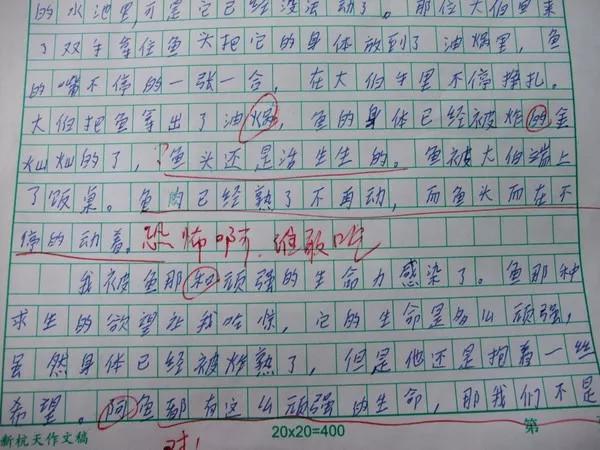 的水池里,可是它已经没法动了。那位大伯里来
了双手拿住鱼头把它的身体放到了油锅里,鱼
的嘴不停的一张一合,在大伯手里不停挣扎。
大伯把鱼拿出了油锅,鱼的身体已经被炸的金
灿灿的了,鱼头还是活生生的。鱼被大伯端上
了饭桌。鱼肉已经熟了不再动,而鱼头而在不
停的动着。恐怖啊,谁敢吃
我被鱼那和顽强的生命力感染了。鱼那种
求生的欲望让我吃惊,它的生命是多么顽强,
虽然身体已经被炸熟了,但是他还是抱着一丝
希望。阿鱼都有这么顽强的生命,那我们不是
新杭天作文稿 20×20=400 第
对!